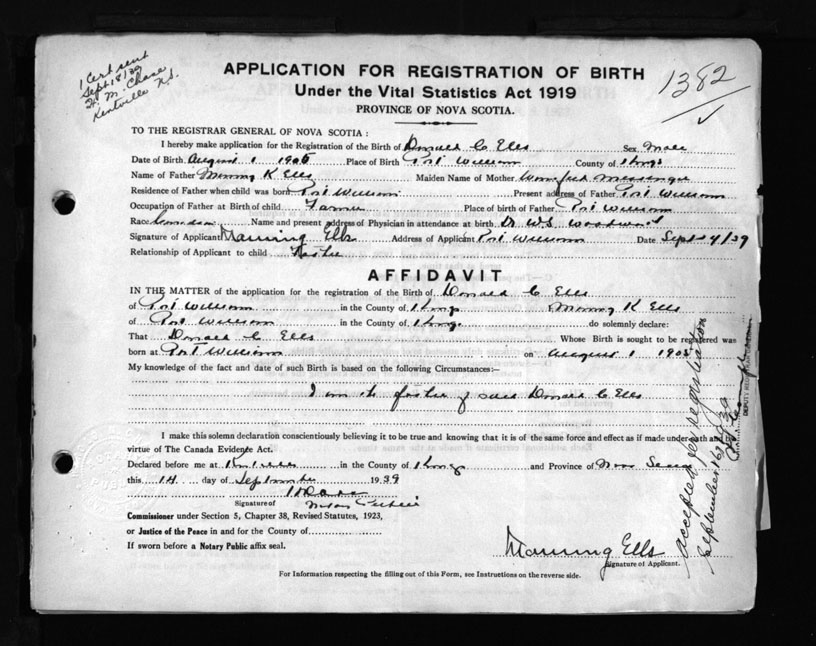 1 Cert sent
Sept 18/39
M. Chase
Kentville N.S.
1382
APPLICATION FOR REGISTRATION OF BIRTH
Under the Vital Statistics Act 1919
PROVINCE OF NOVA SCOTIA.
TO THE REGISTRAR GENERAL OF NOVA SCOTIA:
I hereby make application for the Registration of the Birth of Donald C Ells Sex Male
Date of Birth August 1 Place of Birth Port William County of Kings
Name of Father Manning K Ells Maiden Name of Mother Messenger
Residence of Father when child was born Port William Present address of Father Port William
Occupation of Father at Birth of child Farmer Place of birth of Father Port William
Race Canadian Name and present address of Physician in attendance at birth Dr W.S. Woodworth
Signature of Applicant Manning Ells Address of Applicant Port William Date Sept 4/39
Relationship of Applicant to child
AFFIDAVIT
IN THE MATTER of the application for the registration of the Birth of Donald C Ells
of Port William in the County of Kings Manning K Ells
of Port William in the County of Kings do solemnly declare:
That Donald C Ells Whose Birth is sought to be registered was
born at Port William on August 1
My knowledge of the fact and date of such Birth is based on the following Circumstances:—
I am the father of said Donald C Ells
I make this solemn declaration conscientiously believing it to be true and knowing that it is of the same force and effect as if made under oath and
virtue of The Canada Evidence Act.
Declared before me at in the County of Kings and Province of Nova Scotia
this 14 day of September 1939
Signature of
Notary Public
Commissioner under Section 5, Chapter 38, Revised Statutes, 1923,
or Justice of the Peace in and for the County of
If sworn before a Notary Public affix seal.
Manning Ells
Signature of Applicant.
For Information respecting the filling out of this Form, see Instructions on the reverse side.
accepted for registration
September 16, 1939
DEPUTY REGISTRAR GENERAL